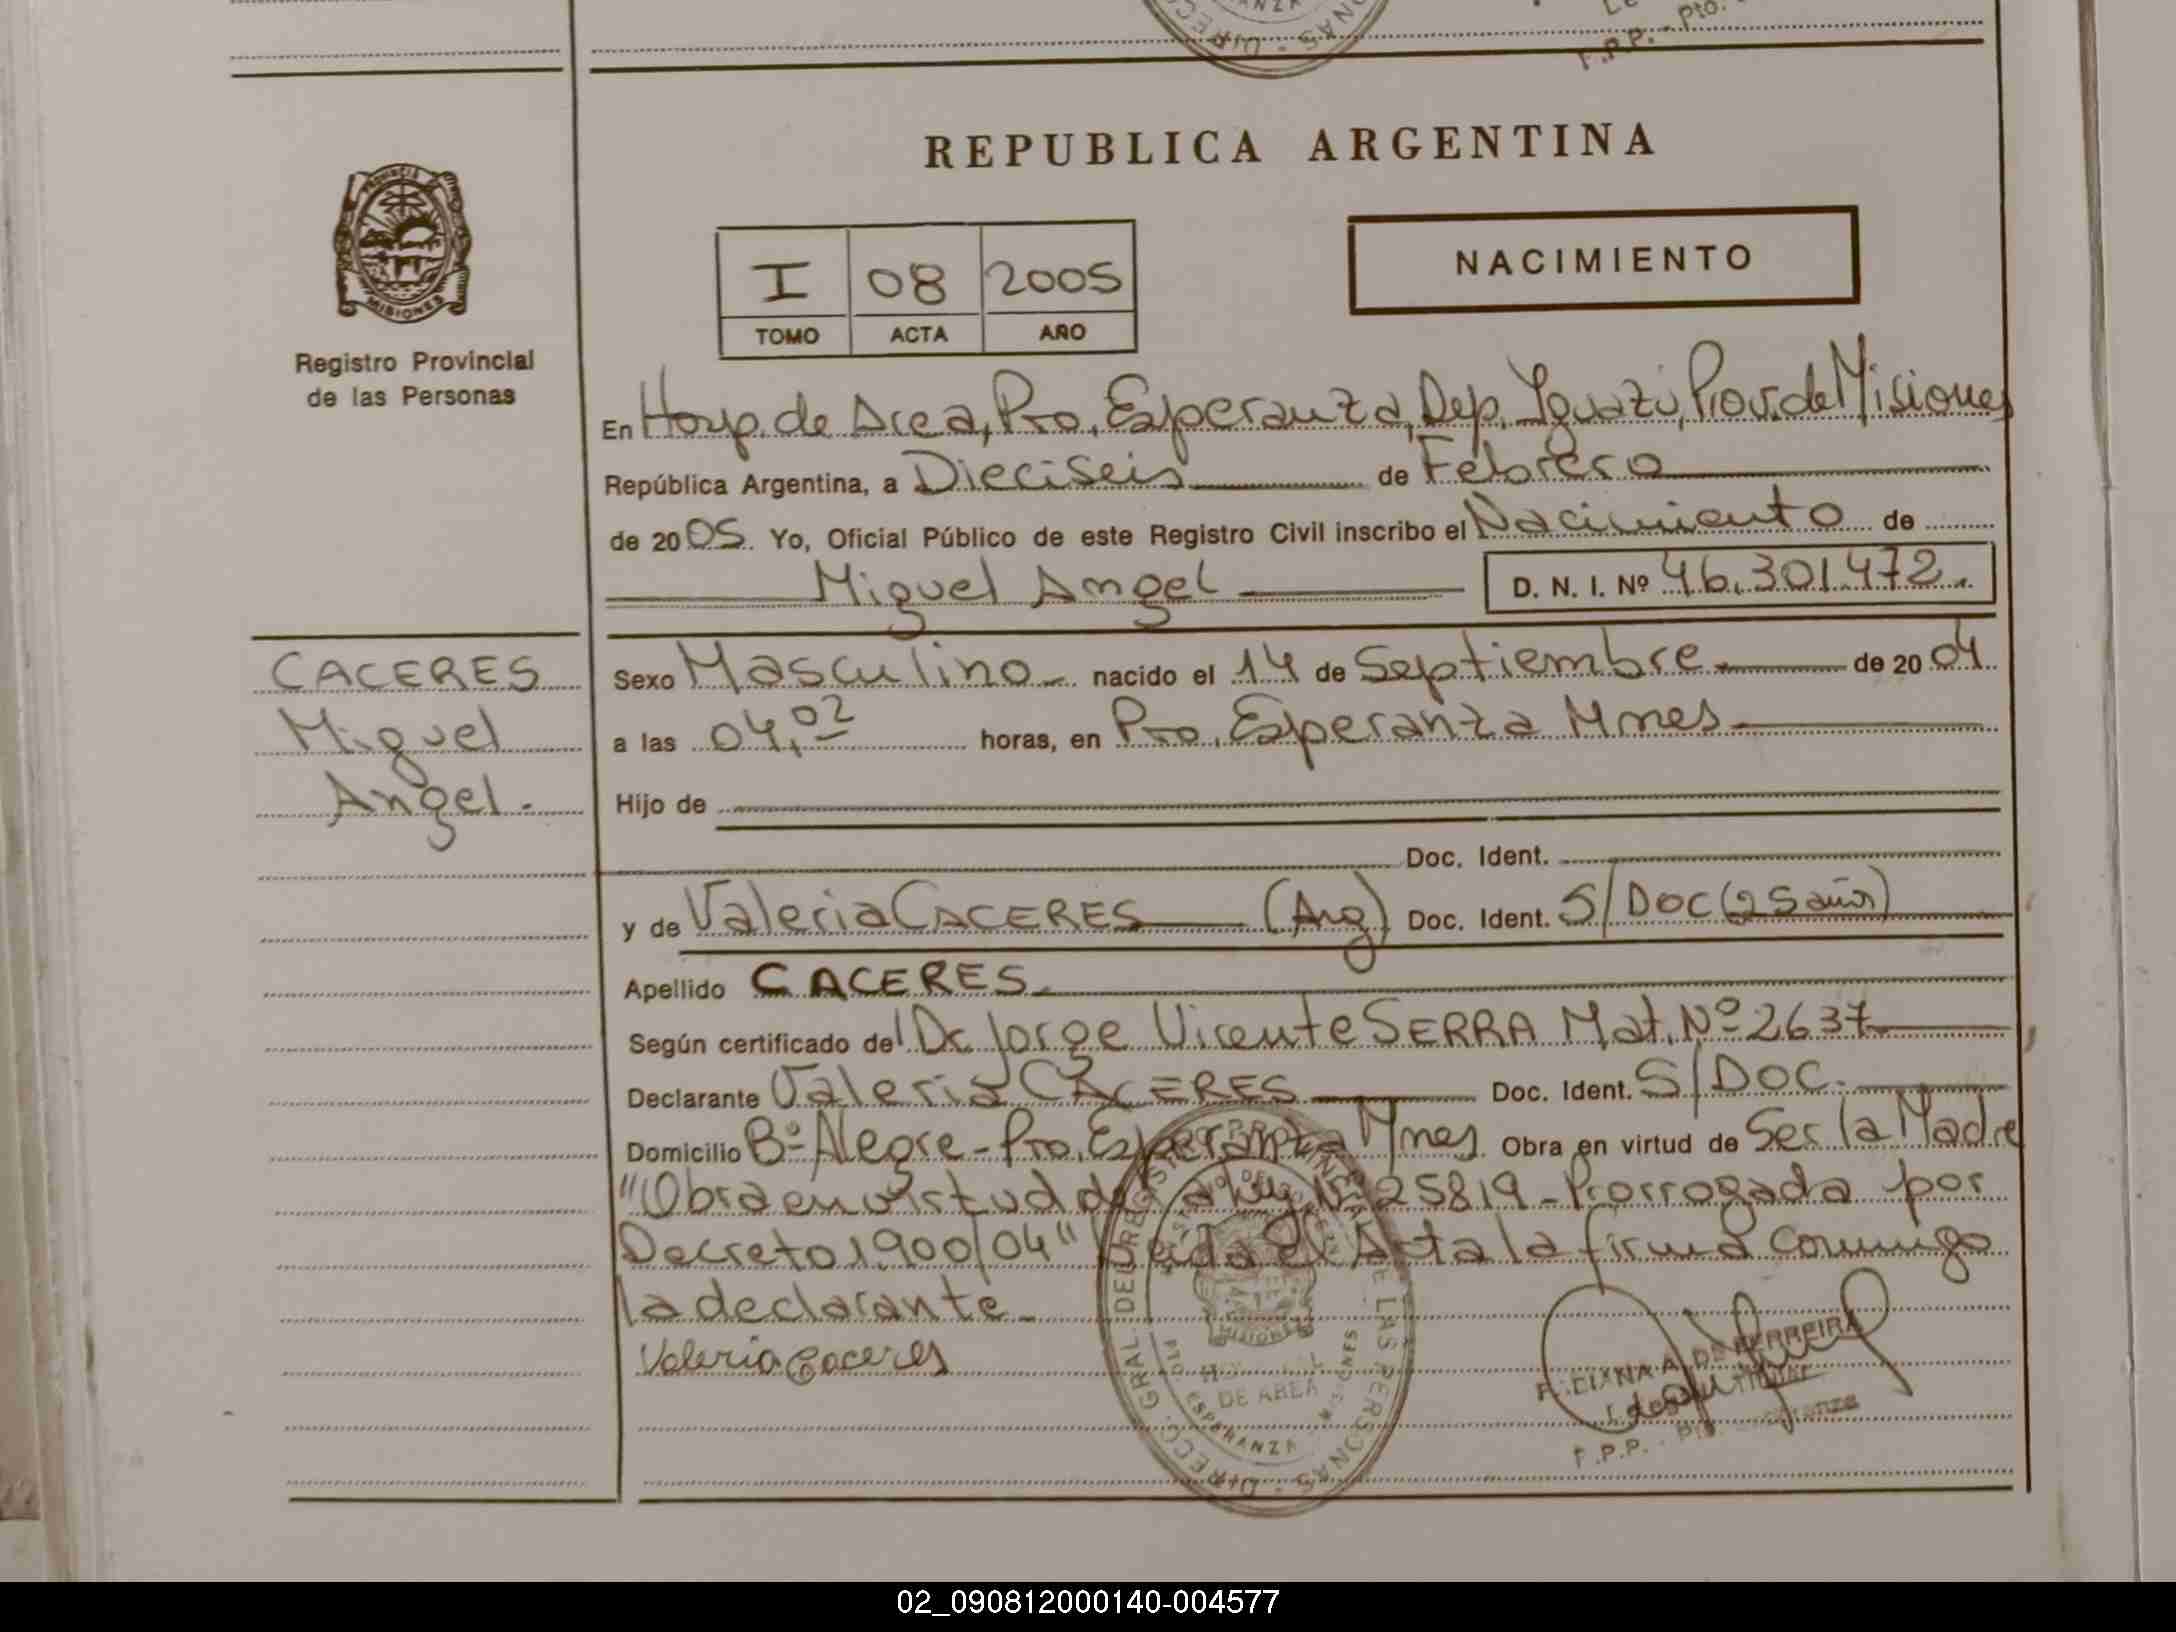 REPUBLICA ARGENTINA
PROVINCIA
MISIONES
Registro Provincial
de las Personas
I 08 2005
TOMO ACTA AÑO
NACIMIENTO
En Hosp. de Area, Pto. Esperanza, Dep. Iguazú, Prov. de Misiones
República Argentina, a Dieciseis de Febrero
de 2005. Yo, Oficial Público de este Registro Civil inscribo el Nacimiento de
Miguel Angel D. N. I. Nº 46.301.472.
CACERES
Miguel
Angel.
Sexo Masculino nacido el 14 de Septiembre de 2004
a las 04,02 horas, en Pto. Esperanza Mnes
Hijo de
Doc. Ident.
y de Valeria CACERES (Arg) Doc. Ident. S/DOC (25 años)
Apellido CACERES.
Según certificado del Dr. Jorge Vicente SERRA Mat. Nº 2637
Declarante Valeria CACERES Doc. Ident. S/DOC.
Domicilio Bº Alegre - Pto. Esperanza Mnes Obra en virtud de Ser la Madre
"Obra en virtud de la Ley Nº 25819 - Prorrogada por
Decreto 1.900/04" Leida el Acta la firma conmigo
la declarante.
Valeria Caceres
DIRECC. GRAL. DEL REGISTRO PROVINCIAL DE LAS PERSONAS
MISIONES
DE AREA
ESPERANZA
A. DE FERREIRA
TITULAR
F.P.P. - Pto. Esperanza
02_090812000140-004577